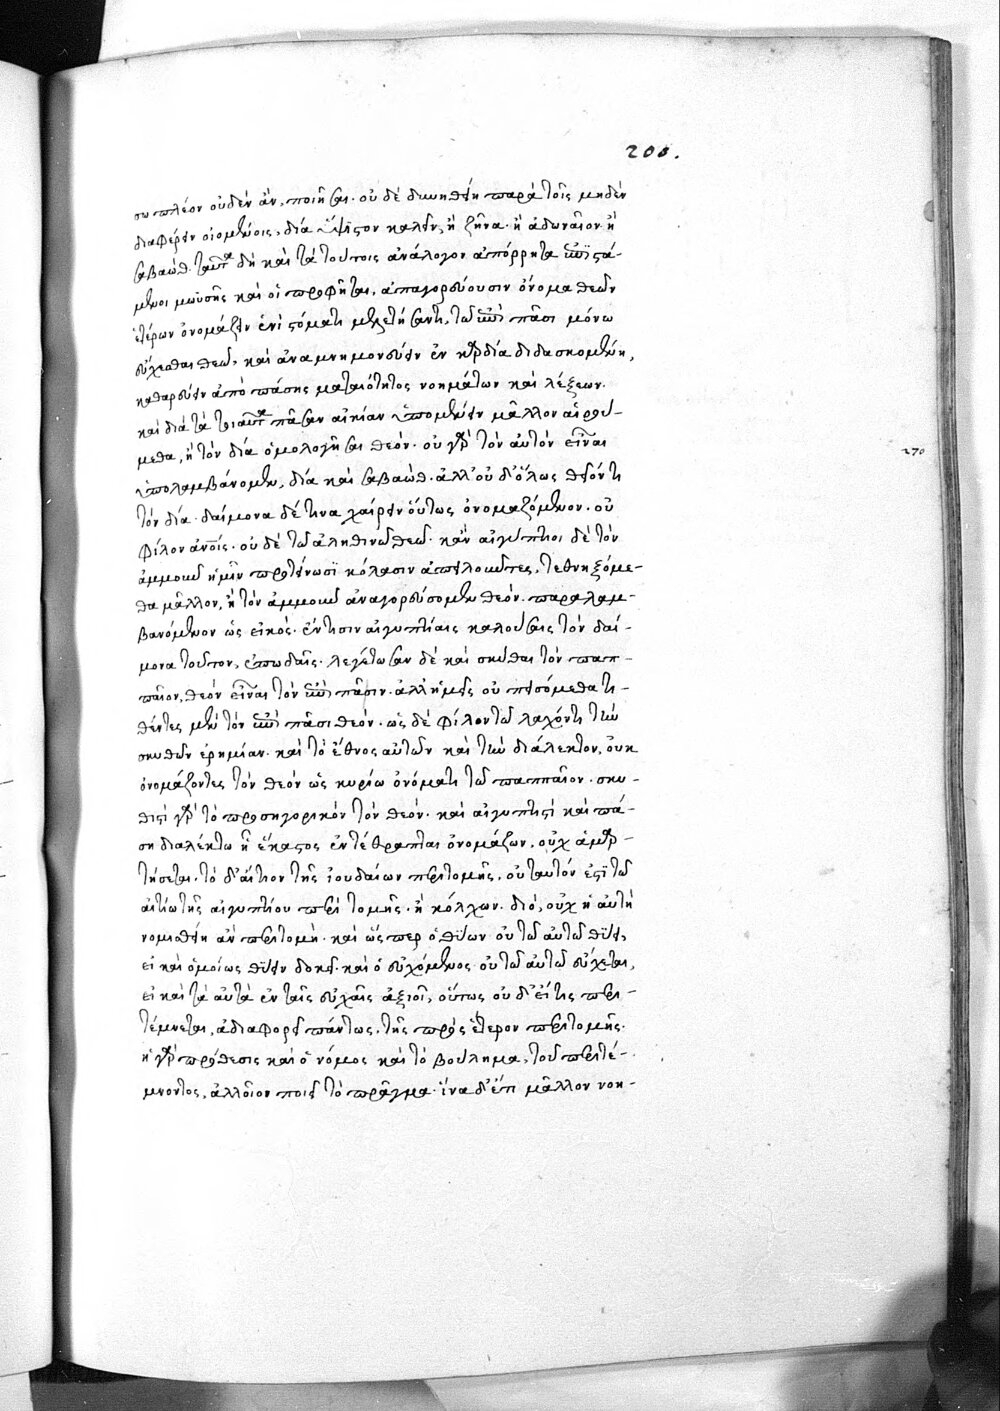 200.
σω πλέον οὐδέν ἄν, ποιῆσαι· οὐ δέ δυνηθῆν παρά τοῖς μηδέν
διαφέρειν οἰομένοις, δία ὕψιστον καλεῖν, ἢ ζῆνα· ἢ ἀδωναῖον· ἢ
σαβαώθ· ταῦτα δὴ καὶ τὰ τούτοις ἀνάλογον ἀπόρρητα ἐπιστά-
μενοι μωϋσῆς καὶ οἱ προφῆται, ἀπαγορεύουσιν ὄνομα θεῶν
ἑτέρων ὀνομάζειν ἑνὶ στόματι μελετήσαντι, τῶ ἐπὶ πᾶσι μόνω
εὔχεσθαι θεῶ, καὶ ἀναμνημονεύειν ἐν καρδία διδασκομένη,
καθαρεύειν ἀπὸ πάσης ματαιότητος νοημάτων καὶ λέξεων.
καὶ διὰ τὰ τοιαῦτα πᾶσαν αἰκίαν ὑπομένειν μᾶλλον αἱρού-
μεθα, ἢ τὸν δία ὁμολογῆσαι θεόν· οὐ γὰρ τὸν αὐτὸν εἶναι
270
ὑπολαμβάνομεν, δία καὶ σαβαώθ· ἀλλ' οὐ δ' ὅλως θεῖόν τι
τὸν δία· δαίμονα δέ τινα χαίρειν οὕτως ὀνομαζόμενον· οὐ
φίλον ἀνοῖς· οὐ δέ τῶ ἀληθινῶ θεῶ· κἂν αἰγύπτιοι δὲ τὸν
ἀμμοῦν ἡμῖν προτείνωσι κόλασιν ἀπειλοῦντες, τεθνηξόμε-
θα μᾶλλον, ἢ τὸν ἀμμοῦν ἀναγορεύσομεν θεόν· παραλαμ-
βανόμενον ὡς εἰκός· ἔν τισιν αἰγυπτίαις καλούσαις τὸν δαί-
μονα τοῦτον, ἐπωδαῖς· λεγέτωσαν δὲ καὶ σκύθαι τὸν παπ-
παῖον, θεόν εἶναι τὸν ἐπὶ πᾶσιν· ἀλλ' ἡμεῖς οὐ πεισόμεθα τι-
θέντες μὲν τὸν ἐπὶ πᾶσι θεόν· ὡς δὲ φίλον τῶ λαχόντι τὴν
σκυθῶν ἐρημίαν· καὶ τὸ ἔθνος αὐτῶν καὶ τὴν διάλεκτον, οὐκ
ὀνομάζοντες τὸν θεόν ὡς κυρίω ὀνόματι τῶ παππαῖον· σκυ-
θιστὶ γὰρ τὸ προσηγορικόν τὸν θεόν· καὶ αἰγυπτιστὶ καὶ πά-
ση διαλέκτω ἧ ἕκαστος ἐντέθραπται ὀνομάζων, οὐχ ἁμαρ-
τήσεται· τὸ δ' αἴτιον τῆς ἰουδαίων περιτομῆς, οὐ ταυτόν ἐστι τῶ
αἰτίω τῆς αἰγυπτίου περιτομῆς· ἢ κόλχων· διό, οὐχ ἡ αὐτὴ
νομισθείη ἂν περιτομή· καὶ ὥσπερ ὁ θύων οὐ τῶ αὐτῶ θύει,
εἰ καὶ ὁμοίως θύειν δοκεῖ· καὶ ὁ εὐχόμενος οὐ τῶ αὐτῶ εὔχεται,
εἰ καὶ τὰ αὐτὰ ἐν ταῖς εὐχαῖς ἀξιοῖ, οὕτως οὐ δ' εἴ τις περι-
τέμνεται, ἀδιαφορεῖ πάντως, τῆς πρός ἕτερον περιτομῆς·
ἡ γὰρ πρόθεσις καὶ ὁ νόμος καὶ τὸ βούλημα, τοῦ περιτέ-
μνοντος, ἀλλοῖον ποιεῖ τὸ πρᾶγμα· ἵνα δ' ἔτι μᾶλλον νοη-